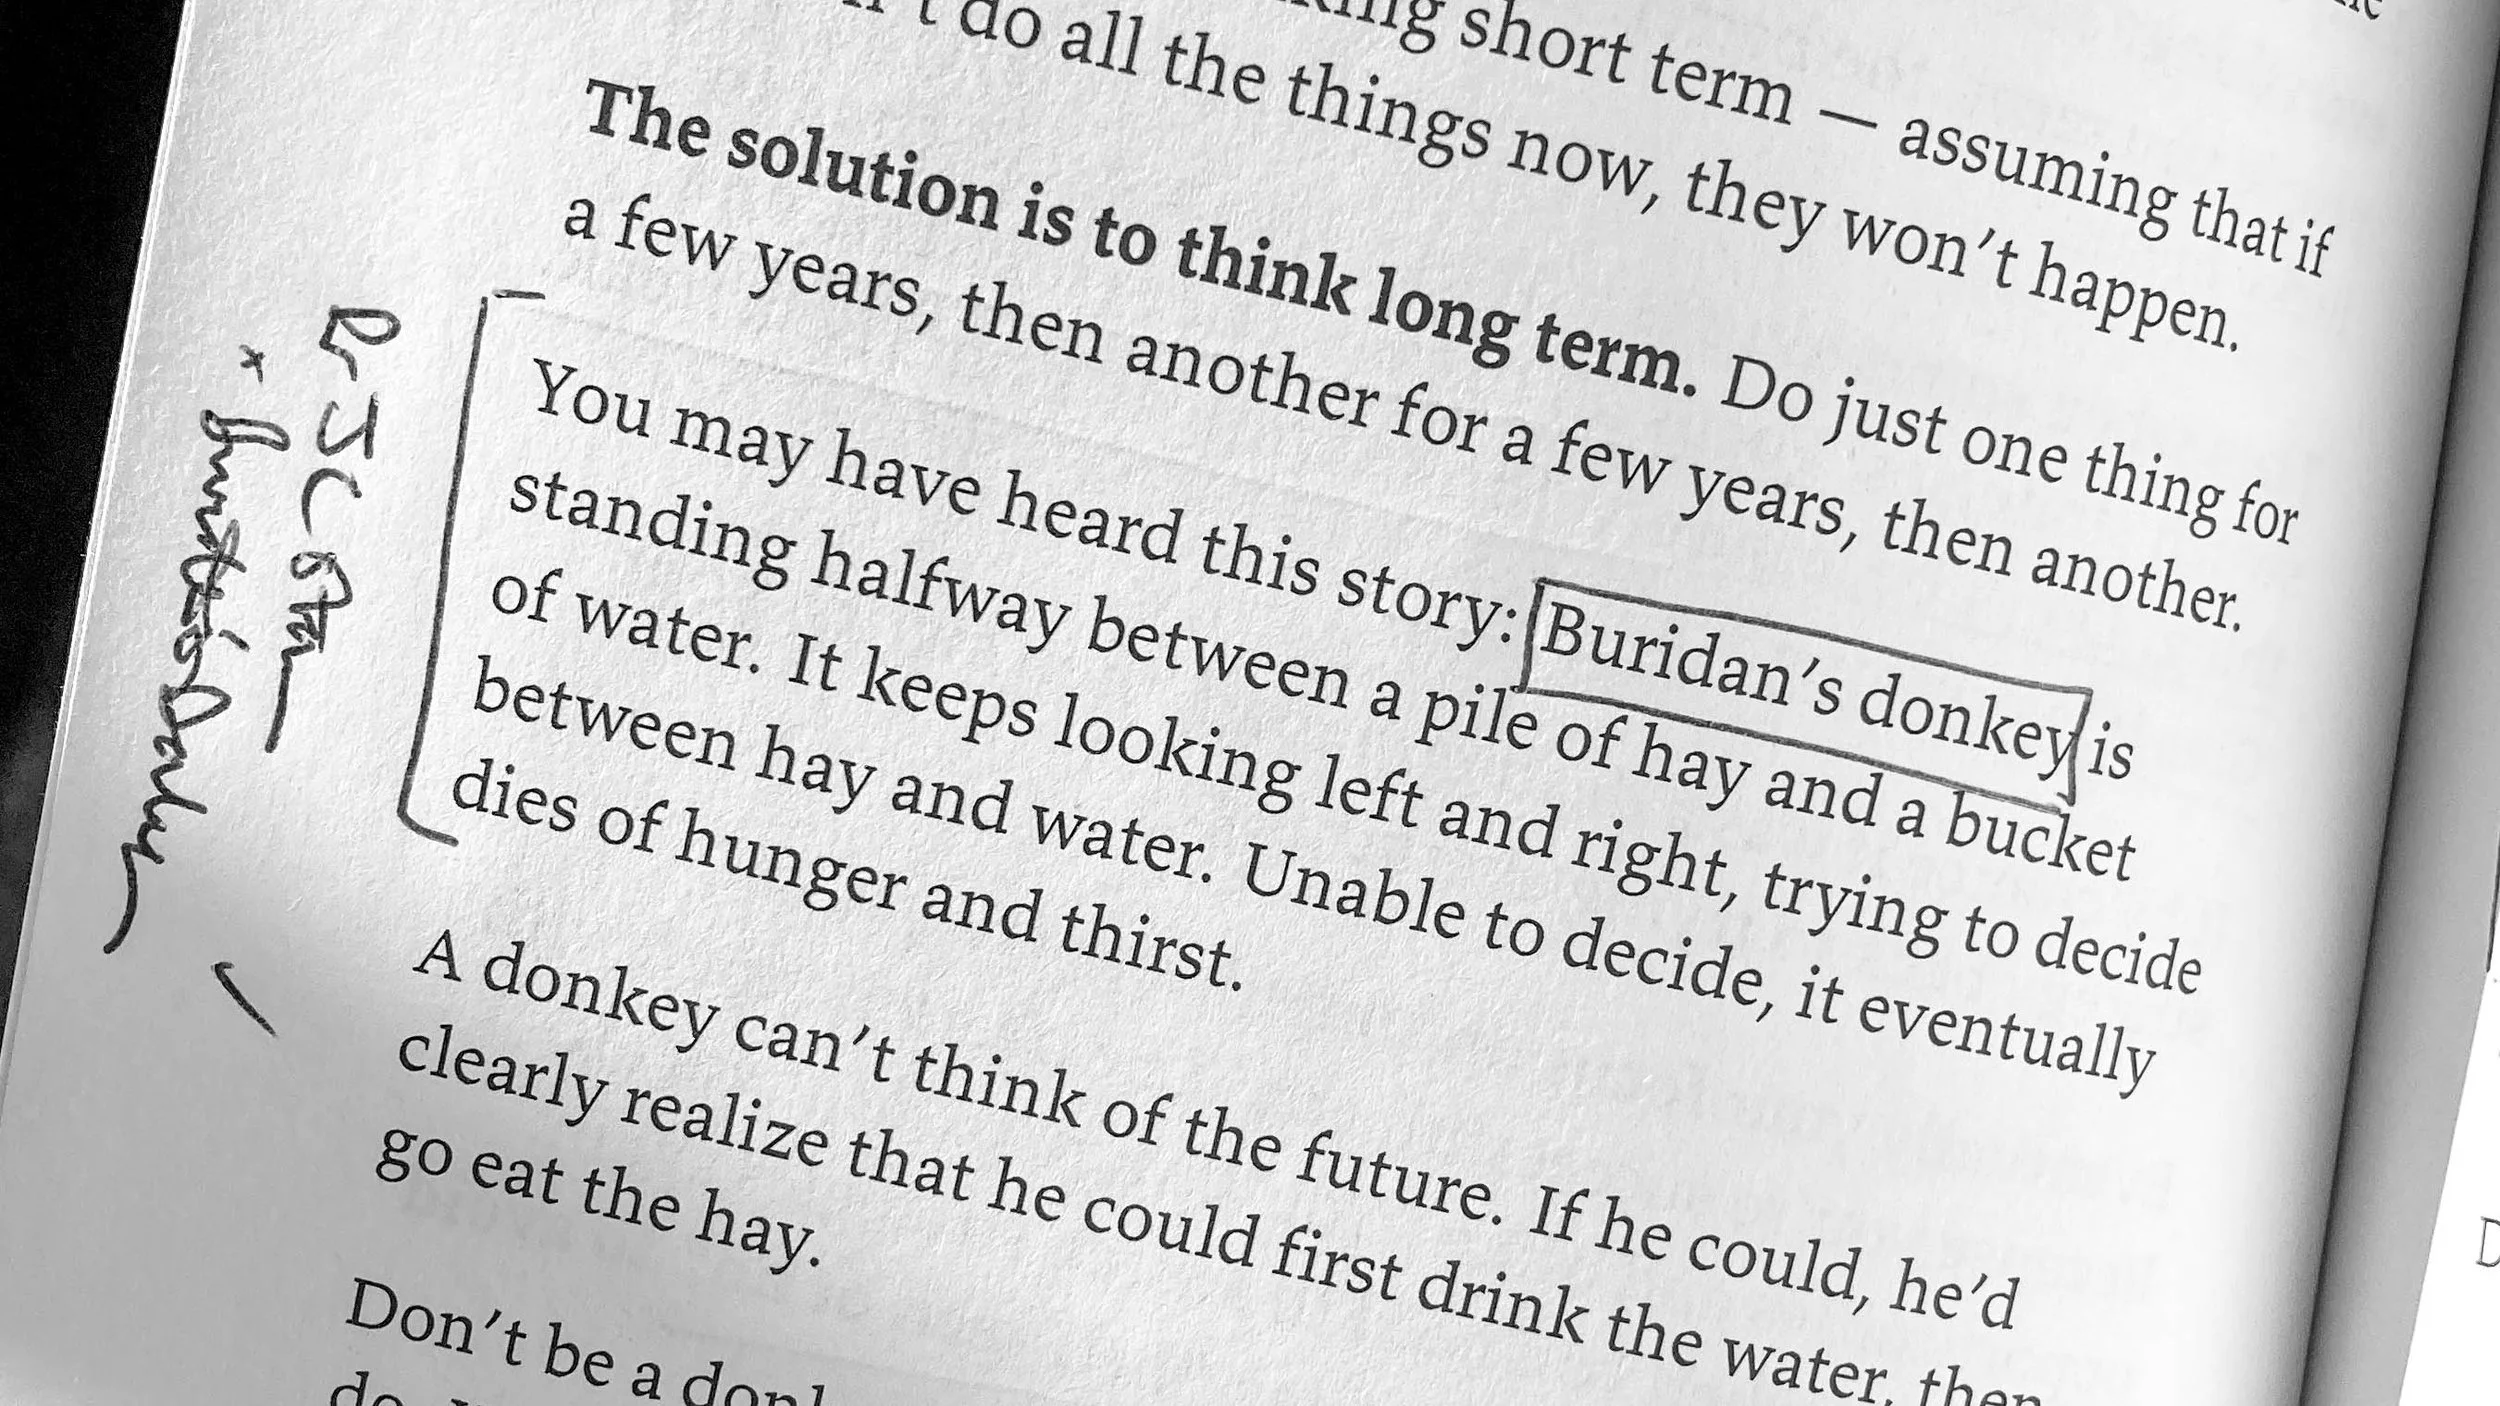 short term — assuming that if
do all the things now, they won't happen.
The solution is to think long term. Do just one thing for
a few years, then another for a few years, then another.
You may have heard this story: Buridan's donkey is
standing halfway between a pile of hay and a bucket
of water. It keeps looking left and right, trying to decide
between hay and water. Unable to decide, it eventually
dies of hunger and thirst.
A donkey can't think of the future. If he could, he'd
clearly realize that he could first drink the water, then
go eat the hay.
Don't be a